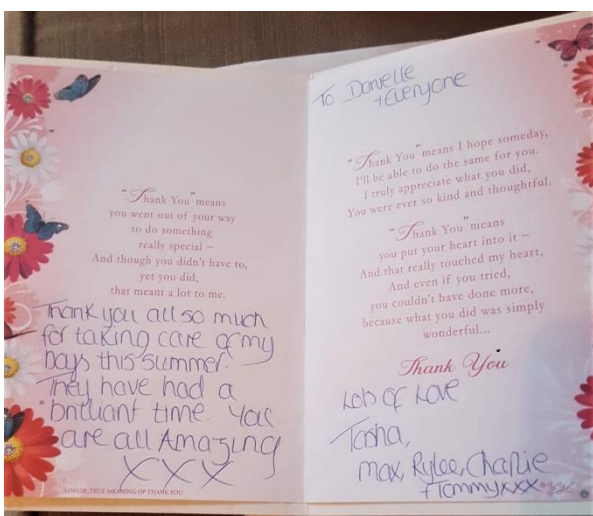 "Thank You" means
you went out of your way
to do something
really special ~
And though you didn't have to,
yet you did,
that meant a lot to me.
Thank you all so much
for taking care of my
boys this summer.
They have had a
brilliant time. You
are all Amazing
XXX
TRUE MEANING OF THANK YOU
To Danielle
+ Everyone
"Thank You" means I hope someday,
I'll be able to do the same for you.
I truly appreciate what you did,
You were ever so kind and thoughtful.
"Thank You" means
you put your heart into it ~
And that really touched my heart,
And even if you tried,
you couldn't have done more,
because what you did was simply
wonderful...
Thank You
Lots of Love
Tasha,
Max, Rylee, Charlie
+ Tommy xxx